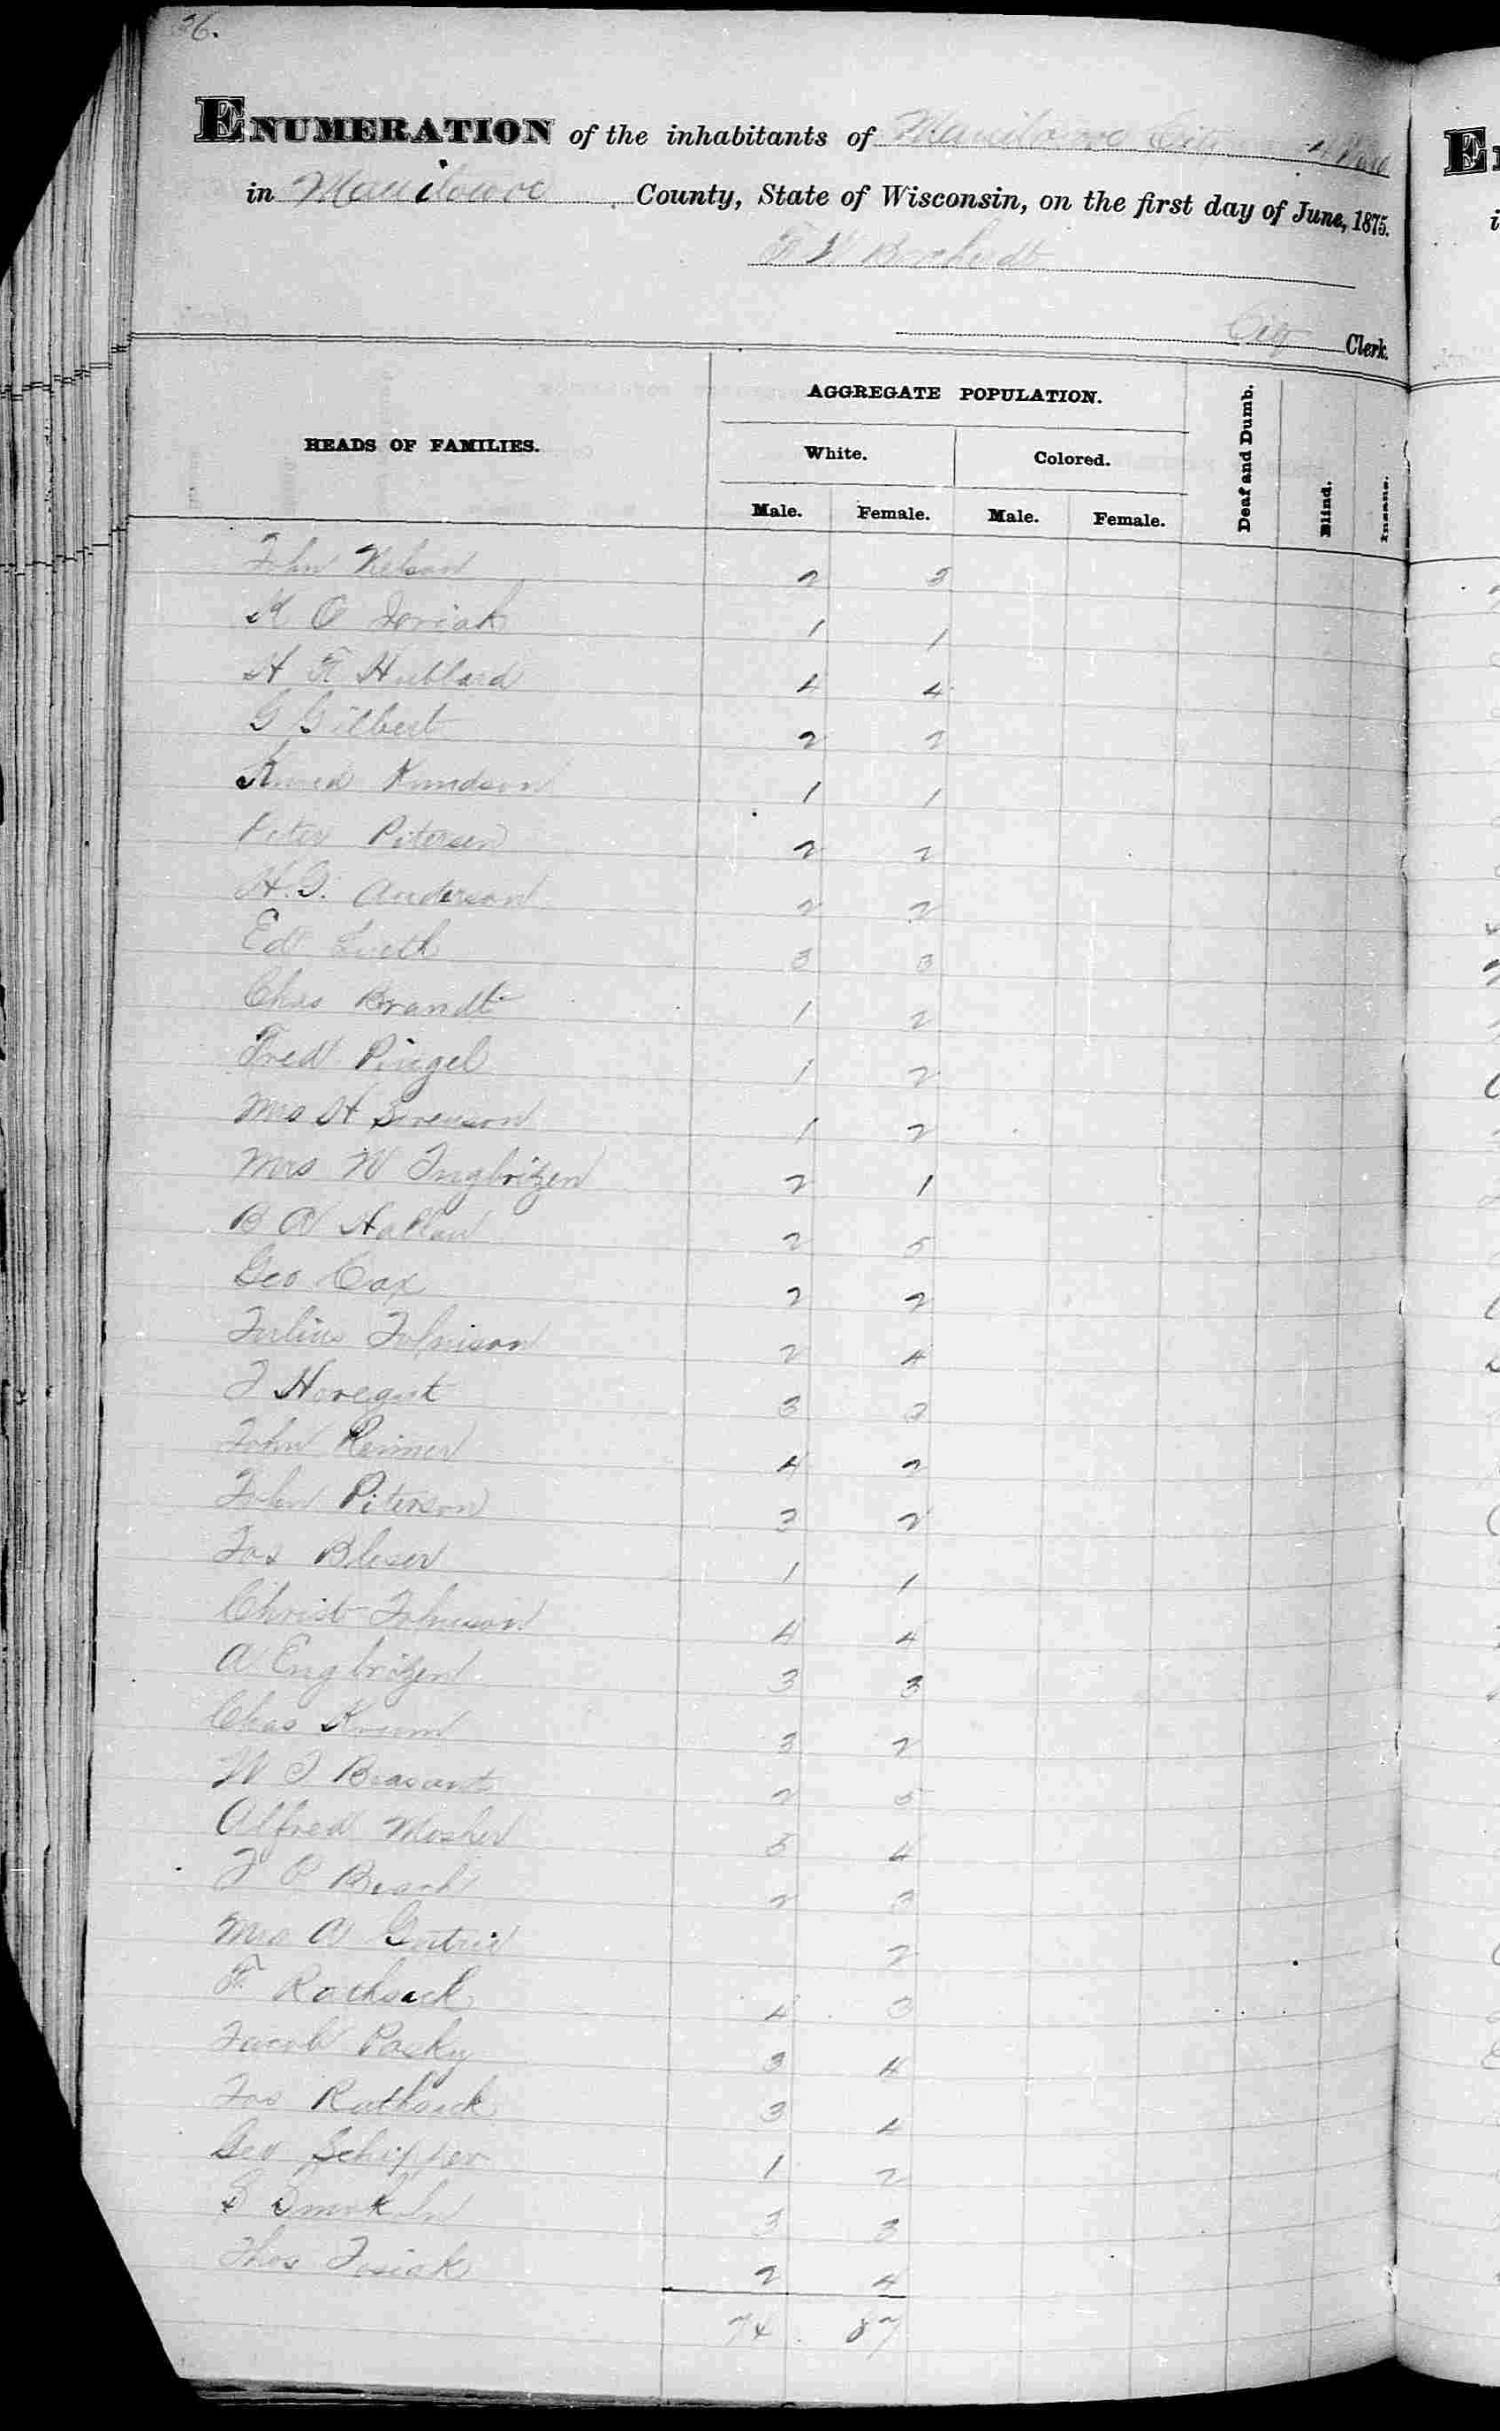 26.
ENUMERATION of the inhabitants of Manitowoc City 4 Ward
in Manitowoc County, State of Wisconsin, on the first day of June, 1875.
F W Borcherdt
City Clerk.
HEADS OF FAMILIES.
AGGREGATE POPULATION.
White. Colored.
Male. Female. Male. Female. Deaf and Dumb. Blind. Insane.
John Nelson 2 3
K O 1 1
H F Hubbard 4 4
G Gilbert 2 2
Knudson 1 1
Peter Petersen 2 2
H. G. Anderson 2 2
Ed Lueth 3 3
Chas Brandt 1 2
Fred Pingel 1 2
Mrs H Sorenson 1 2
Mrs W Ingbrizen 2 1
B 2 5
Geo Cax 2 2
Julius Johnison 2 4
J Horegut 3 3
John Reimer 4 2
John Piterson 3 2
Jos Bleser 1 1
Christ Johnson 4 4
A Engbrizen 3 3
Chas Krumm 3 2
W J 2 5
Alfred Mosher 5 4
J P 2 3
Mrs A 2
F. Rathsack 4 3
Jacob Pasky 3 4
Jos Rathsack 3 4
Geo Schipper 1 2
3 3
Thos Josiak 2 4
74 87